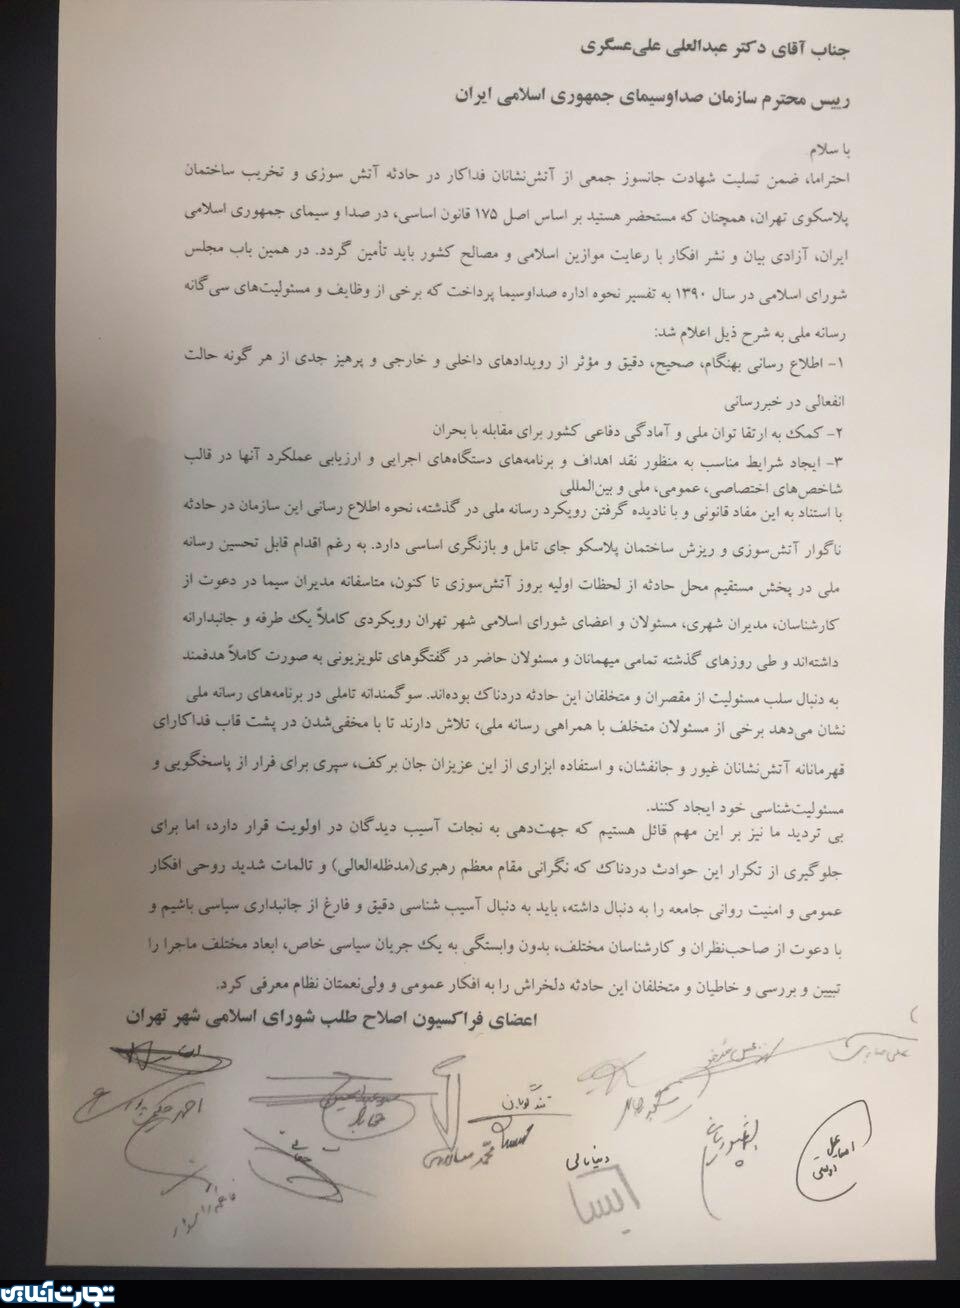 جناب آقای دکتر عبدالعلی علی‌عسگری
رییس محترم سازمان صداوسیمای جمهوری اسلامی ایران
با سلام
احتراما، ضمن تسلیت شهادت جانسوز جمعی از آتش‌نشانان فداکار در حادثه آتش سوزی و تخریب ساختمان
پلاسکوی تهران، همچنان که مستحضر هستید بر اساس اصل ۱۷۵ قانون اساسی، در صدا و سیمای جمهوری اسلامی
ایران، آزادی بیان و نشر افکار با رعایت موازین اسلامی و مصالح کشور باید تأمین گردد. در همین باب مجلس
شورای اسلامی در سال ۱۳۹۰ به تفسیر نحوه اداره صداوسیما پرداخت که برخی از وظایف و مسئولیت‌های سی‌گانه
رسانه ملی به شرح ذیل اعلام شد:
۱- اطلاع رسانی بهنگام، صحیح، دقیق و مؤثر از رویدادهای داخلی و خارجی و پرهیز جدی از هر گونه حالت
انفعالی در خبررسانی
۲- کمک به ارتقا توان ملی و آمادگی دفاعی کشور برای مقابله با بحران
۳- ایجاد شرایط مناسب به منظور نقد اهداف و برنامه‌های دستگاه‌های اجرایی و ارزیابی عملکرد آنها در قالب
شاخص‌های اختصاصی، عمومی، ملی و بین‌المللی
با استناد به این مفاد قانونی و با نادیده گرفتن رویکرد رسانه ملی در گذشته، نحوه اطلاع رسانی این سازمان در حادثه
ناگوار آتش‌سوزی و ریزش ساختمان پلاسکو جای تامل و بازنگری اساسی دارد. به رغم اقدام قابل تحسین رسانه
ملی در پخش مستقیم محل حادثه از لحظات اولیه بروز آتش‌سوزی تا کنون، متاسفانه مدیران سیما در دعوت از
کارشناسان، مدیران شهری، مسئولان و اعضای شورای اسلامی شهر تهران رویکردی کاملاً یک طرفه و جانبدارانه
داشته‌اند و طی روزهای گذشته تمامی میهمانان و مسئولان حاضر در گفتگوهای تلویزیونی به صورت کاملاً هدفمند
به دنبال سلب مسئولیت از مقصران و متخلفان این حادثه دردناک بوده‌اند. سوگمندانه تاملی در برنامه‌های رسانه ملی
نشان می‌دهد برخی از مسئولان متخلف با همراهی رسانه ملی، تلاش دارند تا با مخفی‌شدن در پشت قاب فداکارای
قهرمانانه آتش‌نشانان غیور و جانفشان، و استفاده ابزاری از این عزیزان جان برکف، سپری برای فرار از پاسخگویی و
مسئولیت‌شناسی خود ایجاد کنند.
بی تردید ما نیز بر این مهم قائل هستیم که جهت‌دهی به نجات آسیب دیدگان در اولویت قرار دارد، اما برای
جلوگیری از تکرار این حوادث دردناک که نگرانی مقام معظم رهبری(مدظله‌العالی) و تالمات شدید روحی افکار
عمومی و امنیت روانی جامعه را به دنبال داشته، باید به دنبال آسیب شناسی دقیق و فارغ از جانبداری سیاسی باشیم و
با دعوت از صاحب‌نظران و کارشناسان مختلف، بدون وابستگی به یک جریان سیاسی خاص، ابعاد مختلف ماجرا را
تبیین و بررسی و خاطیان و متخلفان این حادثه دلخراش را به افکار عمومی و ولی‌نعمتان نظام معرفی کرد.
اعضای فراکسیون اصلاح طلب شورای اسلامی شهر تهران
احمد حکیمی پور
اسماعیل دولتی
دنیامالی
تجارت‌آنلاین